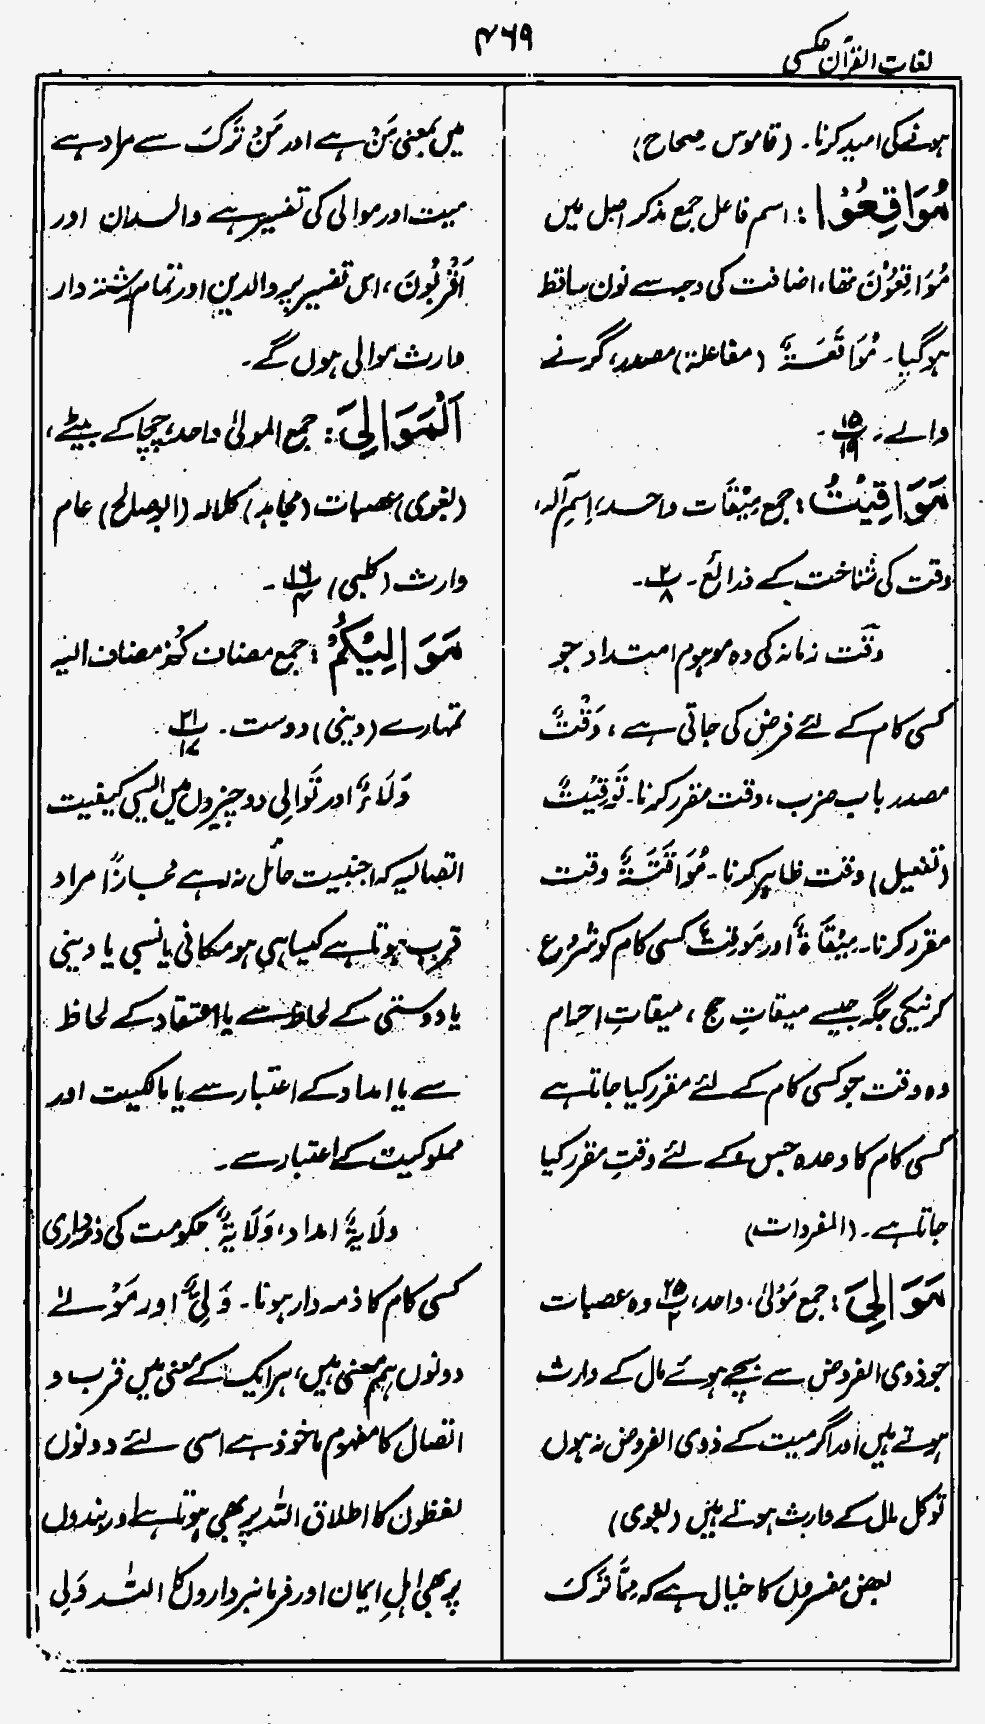 لغات القرآن عکسی
۴۶۹
ہونے کی امید کرنا۔ (قاموس۔ صحاح)
مُوَاقِعُوْا: اسم فاعل جمع مذکر اصل میں
مُوَاقِعُوْنَ تھا، اضافت کی وجہ سے نون ساقط
ہوگیا۔ مُوَاقَعَۃٌ (مفاعلۃ) مصدر، گرنے
والے۔ ۱۵/۱۹۔
مَوَاقِیْتُ: جمع مِیْقَات واحد، اسمِ آلہ،
وقت کی شناخت کے ذرائع۔ ۲/۸۔
وَقْت زمانہ کی وہ موہوم امتداد جو
کسی کام کے لئے فرض کی جاتی ہے، وَقْتٌ
مصدر باب ضرب، وقت مقرر کرنا۔ تَوْقِیْتٌ
(تفعیل) وقت ظاہر کرنا۔ مُوَاقَتَۃٌ وقت
مقرر کرنا۔ مِیْقَاۃٌ اور مَوقِتٌ کسی کام کو شروع
کرنیکی جگہ جیسے میقاتِ حج، میقاتِ احرام
وہ وقت جو کسی کام کے لئے مقرر کیا جاتا ہے
کسی کام کا وعدہ جس کے لئے وقت مقرر کیا
جاتا ہے۔ (المفردات)
مَوَالِیَ: جمع مَوْلیٰ، واحد، ۲۵/۲ وہ عصبات
جو ذوی الفروض سے بچے ہوئے مال کے وارث
ہوتے ہیں اور اگر میت کے ذوی الفروض نہ ہوں
تو کل مال کے وارث ہوتے ہیں (بغوی)
بعض مفسروں کا خیال ہے کہ مِمَّا تَرَکَ
میں بمعنی مَنْ ہے اور مَنْ تَرَکَ سے مراد ہے
میت اور موالی کی تفسیر ہے والدان اور
اَقْرَبُوْنَ، اس تفسیر پر والدین اور تمام رشتہ دار
وارث موالی ہوں گے۔
اَلْمَوَالِیَ: جمع المولیٰ واحد، چچا کے بیٹے،
(بغوی) عصبات (مجاہد) کلالہ (ابوصالح) عام
وارث (کلبی) ۱۶/۴۔
مَوَالِیْکُمْ: جمع مضاف کُمْ مضاف الیہ
تمہارے (دینی) دوست۔ ۲۱/۱۷۔
وَلَاءٌ اور تَوَالِی دو چیزوں میں ایسی کیفیت
اتصالیہ کہ اجنبیت حائل نہ رہے مجازًا مراد
قرب ہوتا ہے کیسا ہی ہو مکانی یا نسبی یا دینی
یا دوستی کے لحاظ سے یا اعتقاد کے لحاظ
سے یا امداد کے اعتبار سے یا مالکیت اور
مملوکیت کے اعتبار سے۔
وِلَایَۃٌ امداد، وَلَایَۃٌ حکومت کی ذمہ داری
کسی کام کا ذمہ دار ہونا۔ وَلِیٌّ اور مَوْلٰے
دونوں ہم معنی ہیں، ہر ایک کے معنی میں قرب و
اتصال کا مفہوم ماخوذ ہے اسی لئے دونوں
لفظوں کا اطلاق اللہ پر بھی ہوتا ہے اور بندوں
پر بھی اہلِ ایمان اور فرمانبرداروں کا اللہ وَلِی